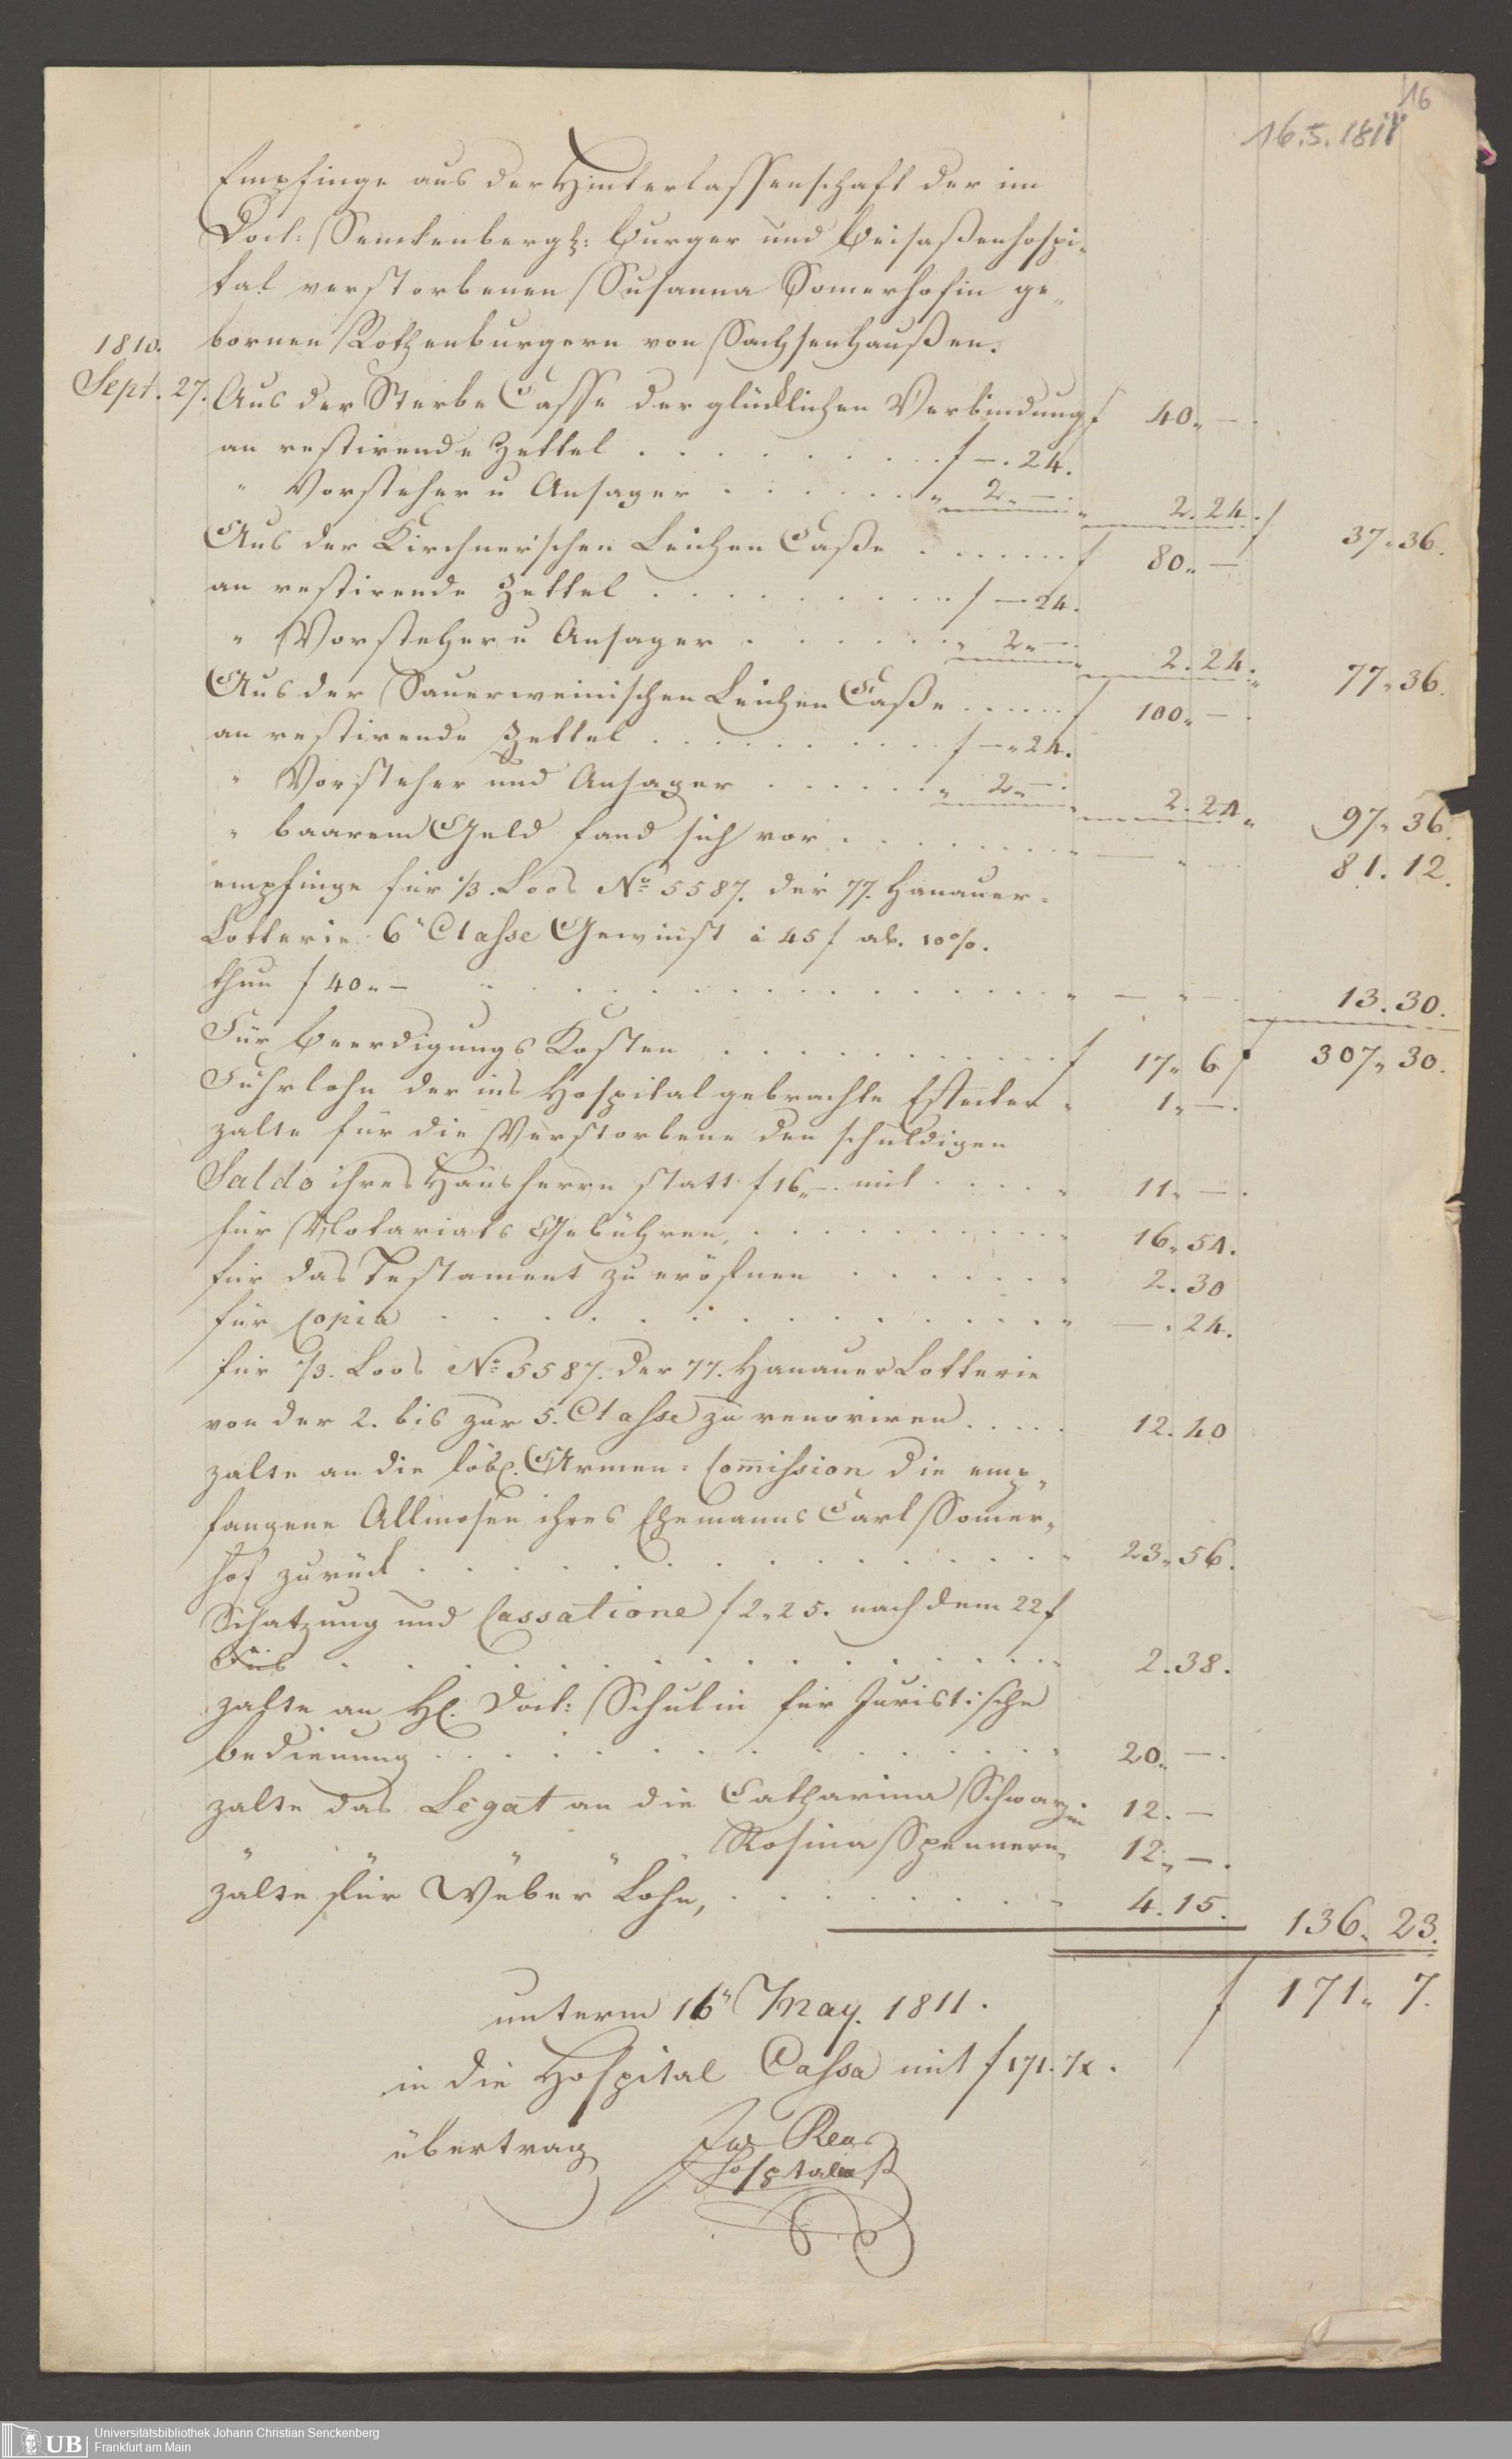 16
16.5.1811
Empfinge aus der Hinterlassenschaft der im
Doct: Senckenbergs: Burger und Beisaßenhospi-
tal verstorbenen Susanna Somerhofin ge-
1810. bornen Rothenburgern von Sachsenhaußen.
Sept. 27. Aus der Sterbe Casse der glücklichen Verbindung f 40„ —.
an restirende Zettel . . . . . . . f —. 24.
" Vorsteher u Ansager . . . . . . „ 2„ —. „ 2. 24. f 37„ 36.
Aus der Kirchner'schen Leichen Caße . . . . . . . f 80„ —
an restirende Zettel . . . . . . . . . f — 24.
" Vorsteher u Ansager . . . . . . „ 2„ —. „ 2. 24. „ 77„ 36.
Aus der Sauerweinischen Leichen Caße . . . . . . f 100„ —.
an restirende Zettel . . . . . . . . . f —„ 24.
" Vorsteher und Ansager . . . . . . „ 2„ —. „ 2. 24 „ 97„ 36.
" baarem Geld fand sich vor . . . . . . . . „ — „ — 81. 12.
empfinge für 1/3. Loos No 5587. der 77. Hanauer-
Lotterie 6n Classe Gewinst à 45 f ab. 10%.
thun f 40„ — . . . . . . . . . . . . „ — „ — 13. 30.
Für Beerdigungs Kosten . . . . . . . . . . f 17„ 6 f 307„ 30.
Fuhrlohn der ins Hospital gebrachte Effecten „ 1„ —.
zalte für die Verstorbene den schuldigen
Saldo ihres Hausherrn statt f 16„ —. mit . . . . „ 11„ —.
für Notariats Gebühren, . . . . . . . . . „ 16„ 54.
für das Testament zu eröfnen . . . . . . „ 2. 30
für Copia . . . . . . . . . . . . . „ —. 24.
für 1/3. Loos No 5587. der 77. Hanauer Lotterie
von der 2. bis zur 5. Classe zu renoviren . . . . . 12. 40
zalte an die löbl. Armen-Comission die emp-
fangene Allmosen ihres Ehemanns Carl Somer-
hof zurück . . . . . . . . . . . . . „ 23„ 56.
Schatzung und Cassatione f 2„ 25. nach dem 22 f
Fus . . . . . . . . . . . . . . . . „ 2. 38.
zalte an H. Doct: Schulin für Juristische
bedienung . . . . . . . . . . . . . . „ 20„ —.
zalte das Legat an die Catharina Schwarzin 12. —
" " " " „ Rosina Spennern „ 12„ —.
zalte für Weber Lohn, . . . . . . . . „ 4. 15. 136„ 23.
f 171„ 7.
unterm 16n May. 1811.
in die Hospital Cassa mit f 171. 7x.
übertrag
Universitätsbibliothek Johann Christian Senckenberg
Frankfurt am Main
UB